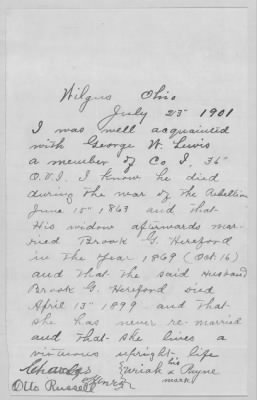 Wilgus Ohio
July 25" 1901
I was well acquainted
with George W. Lewis
a member of Co. I, 36"
O.V.I. I know he died
during the war of the Rebellion
June 15" 1863 and that
His widow afterwards mar-
ried Brook G. Hereford
in the year 1869 (Oct. 16)
and that the said Husband
Brook G. Hereford Died
April 13" 1899 and that
she has never re-married
and that she lives a
virtuous upright life
Charles his
Uriah x Payne
Otto Russell mark